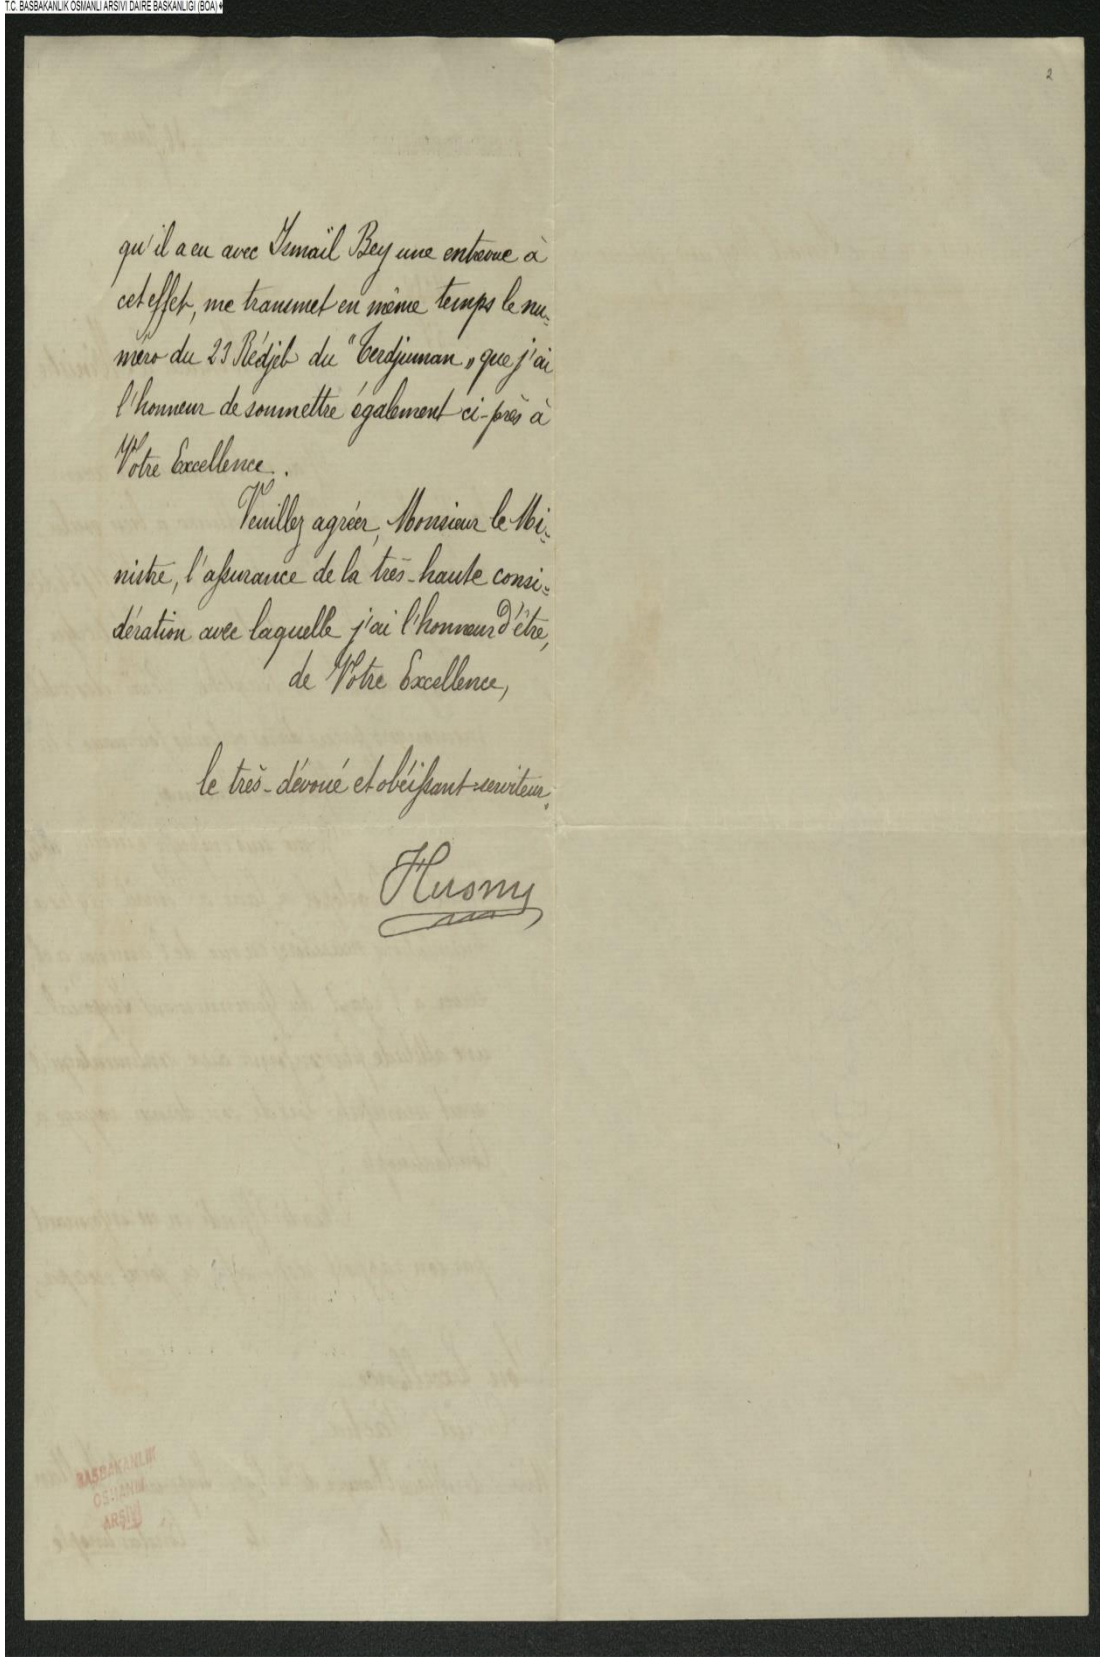 T.C. BASBAKANLIK OSMANLI ARSIVI DAIRE BASKANLIGI (BOA)
2
qu'il a eu avec Ismaïl Bey une entrevue à
cet effet, me transmet en même temps le nu-
méro du 23 Rédjeb du "Terdjuman" que j'ai
l'honneur de soumettre également ci-près à
Votre Excellence.
Veuillez agréer, Monsieur le Mi-
nistre, l'assurance de la très-haute consi-
dération avec laquelle j'ai l'honneur d'être,
de Votre Excellence,
le très-dévoué et obéissant serviteur.
Husny
BASBAKANLIK
OSMANLI
ARŞİVİ